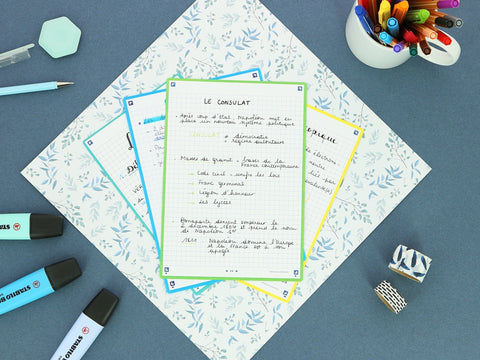 LE CONSULAT
Après coup d'état, Napoléon met en
place un nouveau système politique
CONSULAT = démocratie
+ régime autoritaire
Masses de granit, bases de la
France contemporaine
→ Code civil, unifie les lois
→ Franc germinal
→ Légion d'honneur
→ Les lycées
Bonaparte devient empereur le
2 décembre 1804 et prend le nom
de Napoléon 1er
1811 Napoléon domine l'Europe
et la France est à son
apogée
opique
électron
STABILO
STABILO BO
STABILO